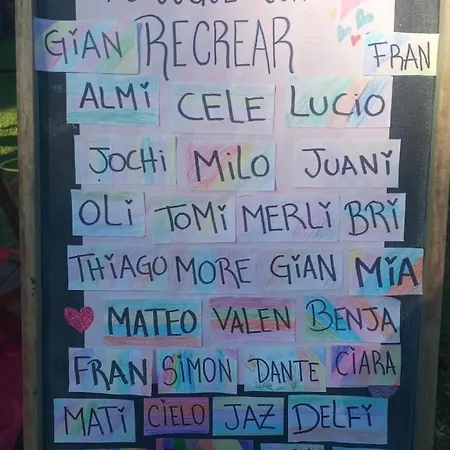 GIAN RECREAR FRAN
ALMI CELE LUCIO
JOCHI MILO JUANI
OLI TOMI MERLI BRI
THIAGO MORE GIAN MIA
MATEO VALEN BENJA
FRAN SIMON DANTE CIARA
MATI CIELO JAZ DELFI